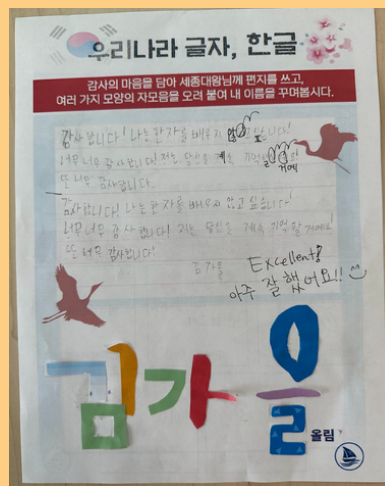 우리나라 글자, 한글
감사의 마음을 담아 세종대왕님께 편지를 쓰고,
여러 가지 모양의 자모음을 오려 붙여 내 이름을 꾸며봅시다.
감사합니다! 나는 한자를 배우지 않고 있습니다!
너무 너무 감사합니다! 저는 당신을 계속 기억할
거예
또 너무 감사합니다.
감사합니다! 나는 한자를 배우지 않고 있습니다!
너무 너무 감사합니다! 저는 당신을 계속 기억할 거예요!
또 너무 감사합니다!
김가을
Excellent!
아주 잘 했어요!!
김가을
올림